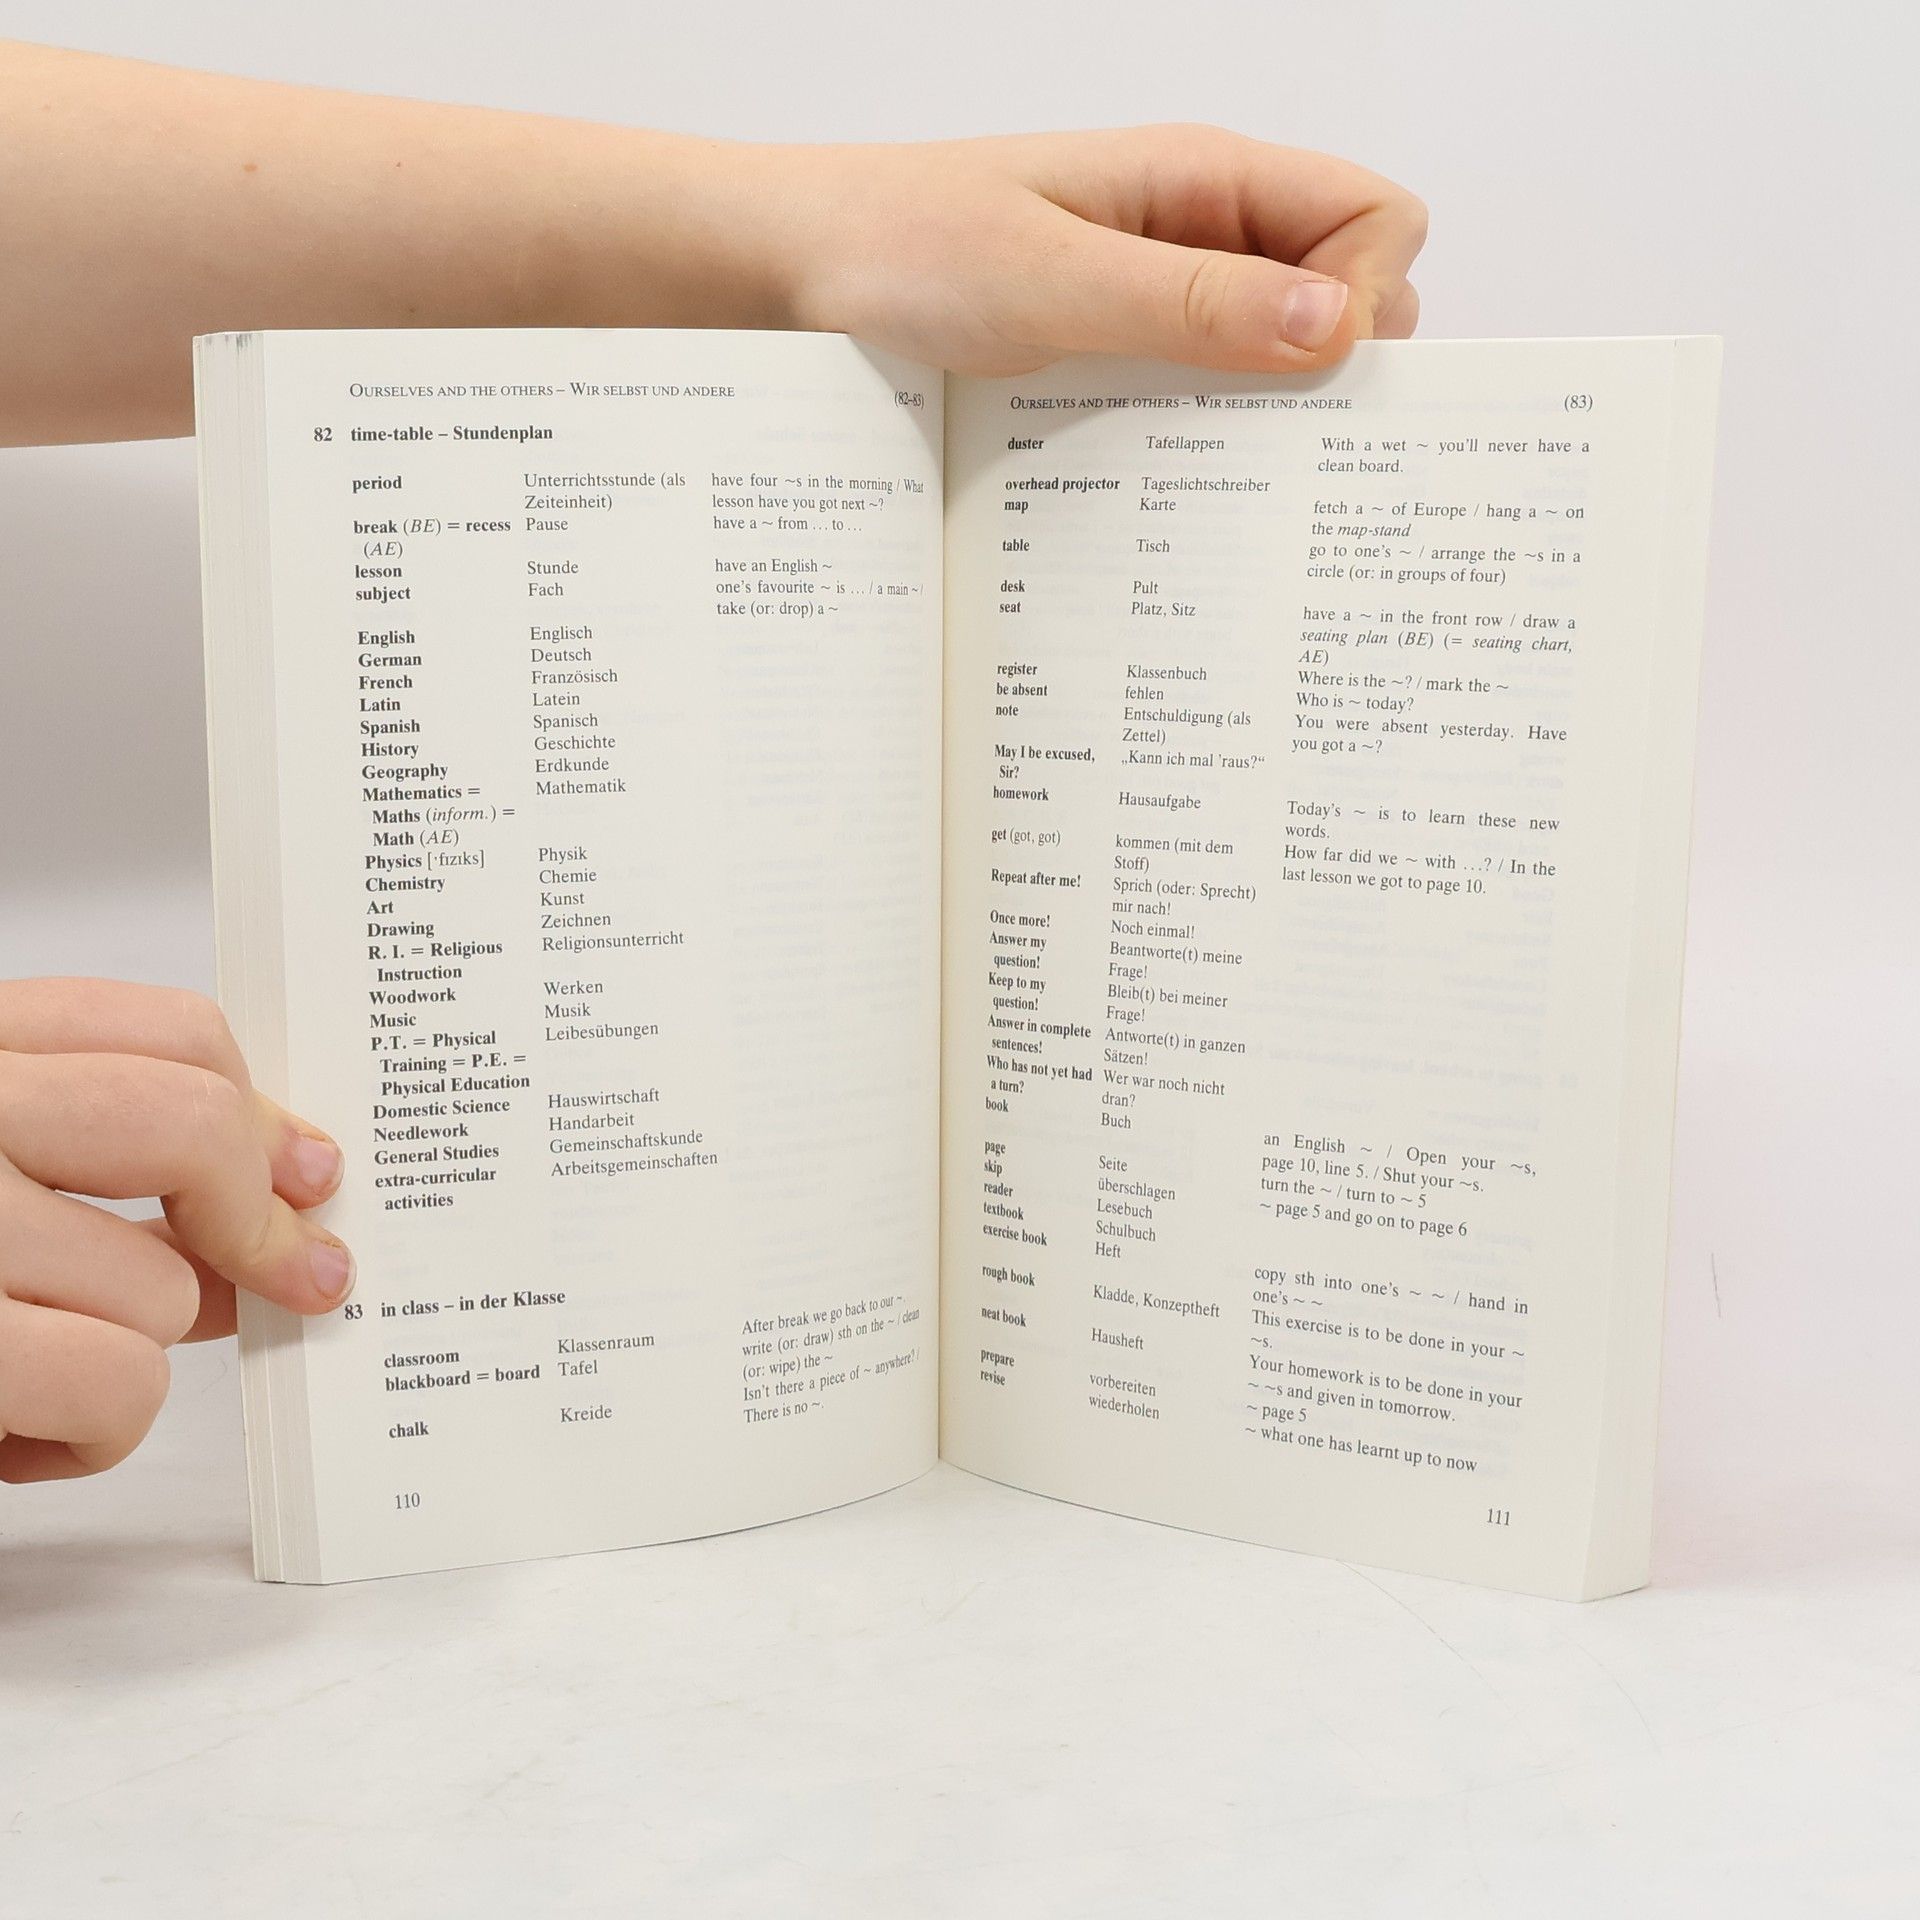 OURSELVES AND THE OTHERS – WIR SELBST UND ANDERE (82–83)
82 time-table – Stundenplan
period Unterrichtsstunde (als have four ~s in the morning / What
Zeiteinheit) lesson have you got next ~?
break (BE) = recess Pause have a ~ from … to …
(AE)
lesson Stunde have an English ~
subject Fach one's favourite ~ is … / a main ~ /
take (or: drop) a ~
English Englisch
German Deutsch
French Französisch
Latin Latein
Spanish Spanisch
History Geschichte
Geography Erdkunde
Mathematics = Mathematik
Maths (inform.) =
Math (AE)
Physics ['fızıks] Physik
Chemistry Chemie
Art Kunst
Drawing Zeichnen
R. I. = Religious Religionsunterricht
Instruction
Woodwork Werken
Music Musik
P.T. = Physical Leibesübungen
Training = P.E. =
Physical Education
Domestic Science Hauswirtschaft
Needlework Handarbeit
General Studies Gemeinschaftskunde
extra-curricular Arbeitsgemeinschaften
activities
83 in class – in der Klasse
classroom Klassenraum After break we go back to our ~.
blackboard = board Tafel write (or: draw) sth on the ~ / clean
(or: wipe) the ~
chalk Kreide Isn't there a piece of ~ anywhere? /
There is no ~.
110
OURSELVES AND THE OTHERS – WIR SELBST UND ANDERE (83)
duster Tafellappen With a wet ~ you'll never have a
clean board.
overhead projector Tageslichtschreiber
map Karte fetch a ~ of Europe / hang a ~ on
the map-stand
table Tisch go to one's ~ / arrange the ~s in a
circle (or: in groups of four)
desk Pult
seat Platz, Sitz have a ~ in the front row / draw a
seating plan (BE) (= seating chart,
AE)
register Klassenbuch Where is the ~? / mark the ~
be absent fehlen Who is ~ today?
note Entschuldigung (als You were absent yesterday. Have
Zettel) you got a ~?
May I be excused, „Kann ich mal 'raus?“
Sir?
homework Hausaufgabe Today's ~ is to learn these new
words.
get (got, got) kommen (mit dem How far did we ~ with …? / In the
Stoff) last lesson we got to page 10.
Repeat after me! Sprich (oder: Sprecht)
mir nach!
Once more! Noch einmal!
Answer my Beantworte(t) meine
question! Frage!
Keep to my Bleib(t) bei meiner
question! Frage!
Answer in complete Antworte(t) in ganzen
sentences! Sätzen!
Who has not yet had Wer war noch nicht
a turn? dran?
book Buch an English ~ / Open your ~s,
page 10, line 5. / Shut your ~s.
page Seite turn the ~ / turn to ~ 5
skip überschlagen ~ page 5 and go on to page 6
reader Lesebuch
textbook Schulbuch
exercise book Heft copy sth into one's ~ ~ / hand in
one's ~ ~
rough book Kladde, Konzeptheft This exercise is to be done in your ~
~s.
neat book Hausheft Your homework is to be done in your
~ ~s and given in tomorrow.
prepare vorbereiten ~ page 5
revise wiederholen ~ what one has learnt up to now
111